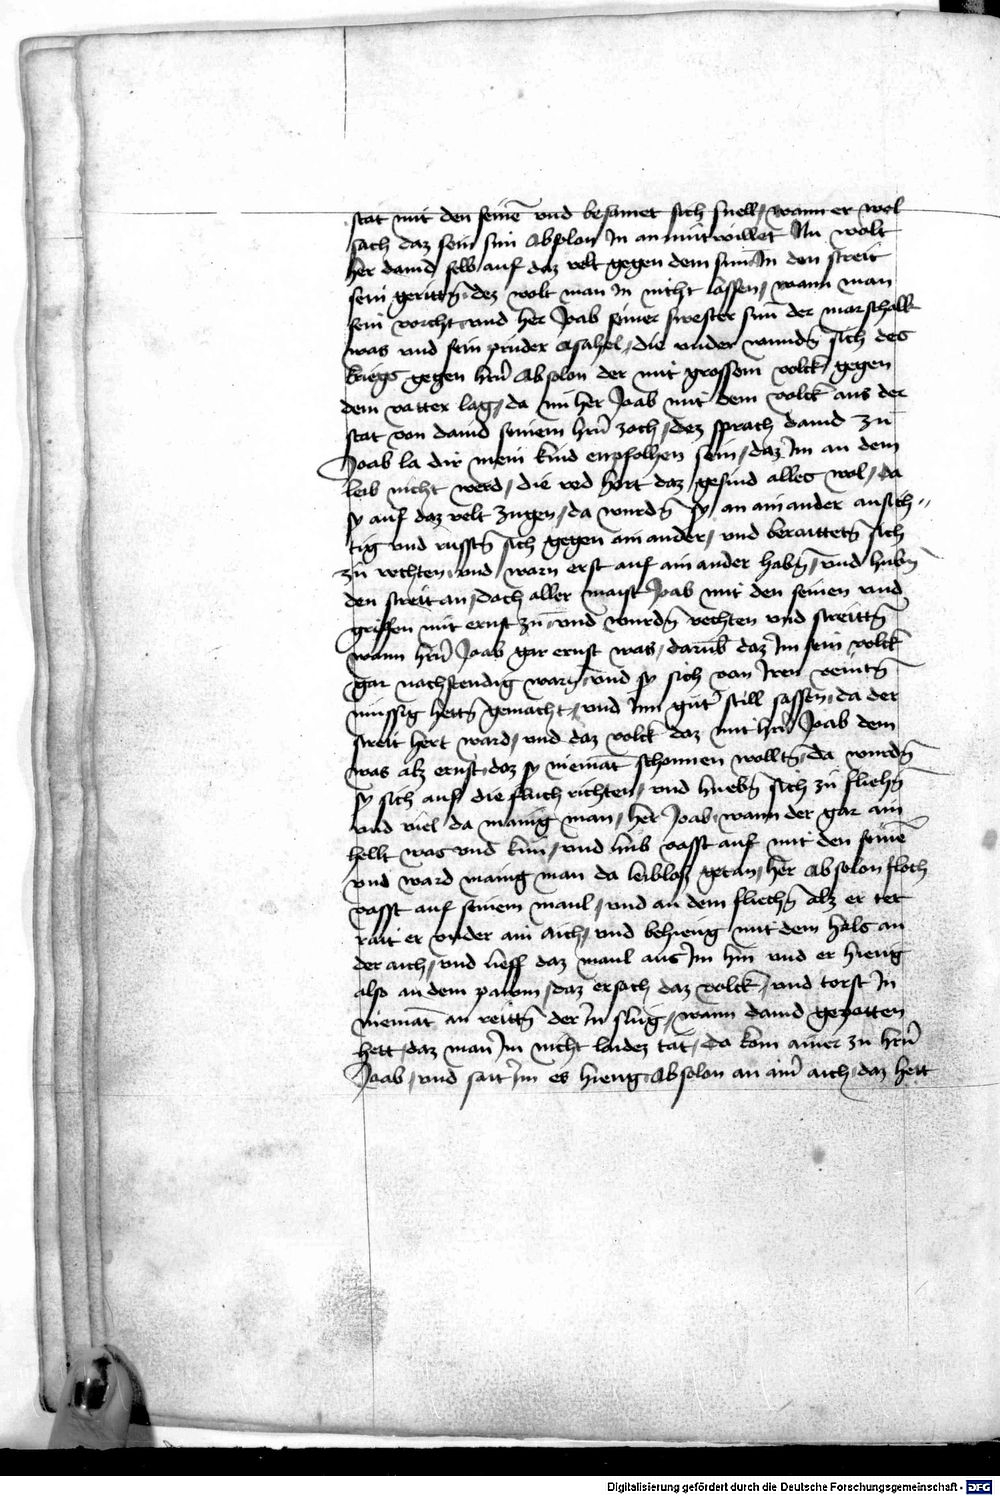 stat mit den seinē vnd besamet sich snell / wann er wol
sach daz sein sun Absolon in an mutwillet Nu wolt
her dauid selb auf daz velt gegen dem sun In den streit
sein geritt̄n dez wolt man in nicht lassen / wann man
sein vorcht vnd her Joab seiner swester sun der marschalk
was vnd sein pruder Asahel / die vnder wundn̄ sich des
kriegs gegen hrn̄ Absolon der mit grossem volck gegen
dem vatter lag / da nu her Joab mit dem volck aus der
stat von dauid seinem hrn̄ zoch / dez sprach dauid zu
Joab la dir mein kind enpfolhen sein / daz im an dem
leib nicht werd / die red hort daz gesind alles wol / da
sy auf daz velt zugen / da wurdn̄ sy an ain ander ansich-
tig vnd russtn̄ sich gegen ain ander / vnd beraittetn̄ sich
zu vechten vnd warn erst auf ain ander habn̄ / vnd hubn̄
den streit an / doch aller maist Joab mit den seinen vnd
griffen mit ernst zu vnd wurdn̄ vechten vnd streittn̄
wann hrn̄ Joab gar ernst was / darūb daz im sein volck
gar nachstendig warn̄ vnd sy sich von iren veintn̄
müssig hettn̄ gemacht / vnd inn gut still sassen / da der
streit hert ward / vnd daz volck daz mit hrn̄ Joab dem
was alz ernst doz sy niemāt schonnen wolltn̄ da wurdn̄
sy sich auf die fluch richten / vnd huebn̄ sich zu fliehn̄
vnd viel da manig man / her Joab wann der gar ain
hellt was vnd kün / vnd hub vasst auf mit den seinē
vnd ward manig man da leiblos getan / her Absolon floch
vasst auf seinem maul / vnd an dem fliechn̄ alz er tet
rait er vnder ain aich / vnd behieng mit dem hals an
der aich / vnd lieff daz maul aus im hin vnd er hieng
also an dem pawm / daz ersach daz volck / vnd torst in
niemāt an reittn̄ der in slug / wann dauid gepotten
hett / daz man im nicht laidez tät / da kom ainer zu hrn̄
Joab / vnd sait im es hieng Absolon an ain̄ aich / daz hett
Digitalisierung gefördert durch die Deutsche Forschungsgemeinschaft - DFG